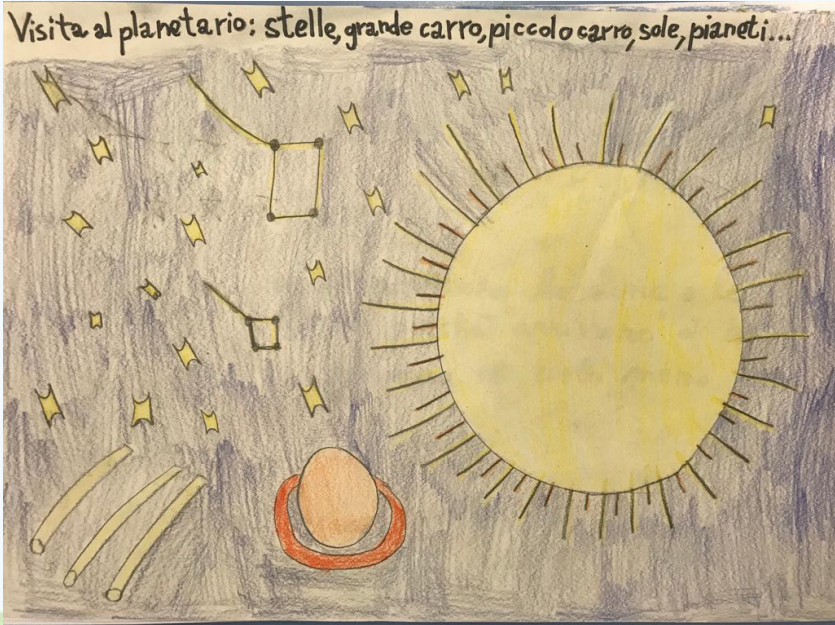 Visita al planetario: stelle, grande carro, piccolo carro, sole, pianeti...